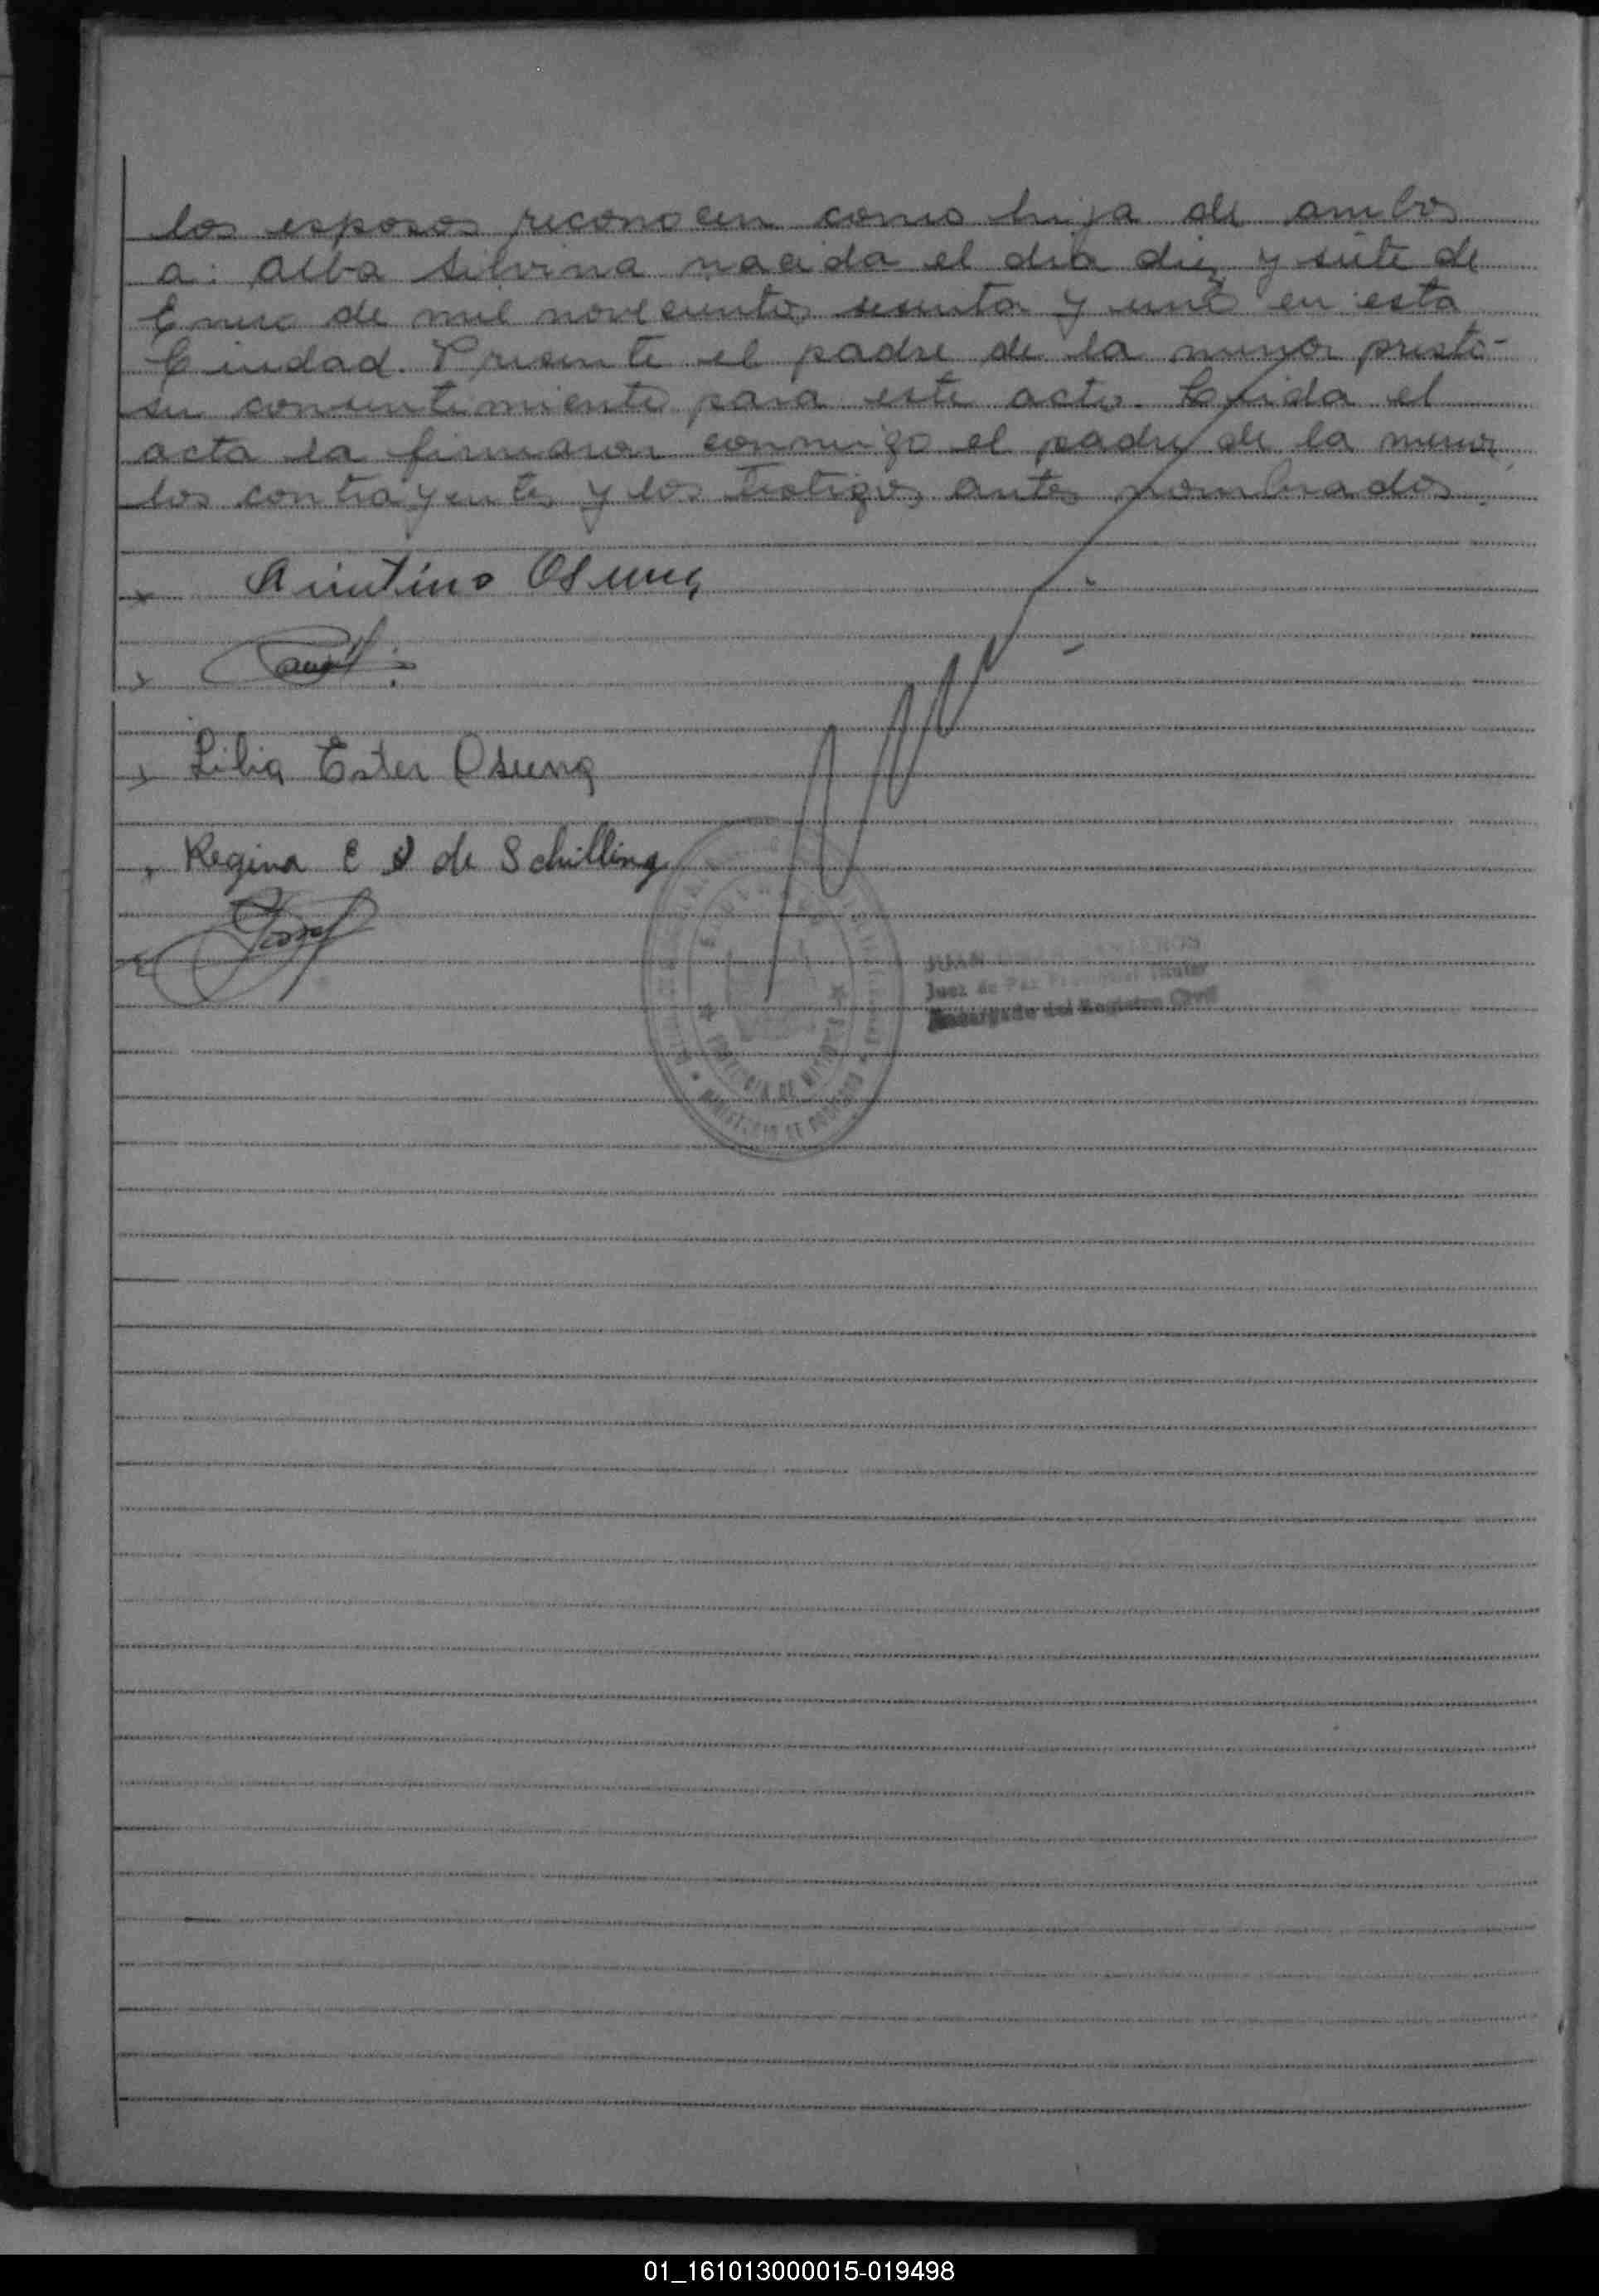 los esposos reconocen como hija de ambos
a: Alba Silvina nacida el dia diez y siete de
Enero de mil novecientos sesenta y uno en esta
Ciudad. Presente el padre de la menor prestó
su consentimiento para este acto. Leida el
acta la firmaron conmigo el padre de la menor,
los contrayentes y los testigos antes nombrados.
Quintino Osuna
Lilia Ester Osuna
Regina E O de Schilling
JUAN
Juez de Paz Provincial Titular
Encargado del Registro Civil
PROVINCIA DE
MINISTERIO DE GOBIERNO
01_161013000015-019498